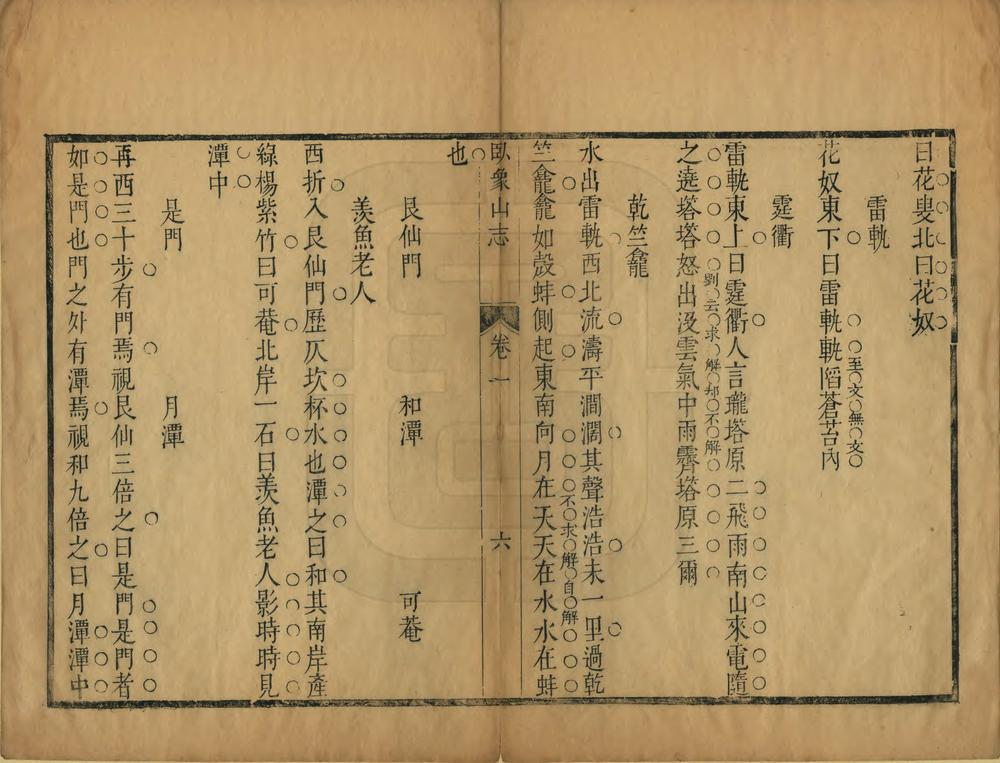 曰花叟北曰花奴
雷軌
花奴東下曰雷軌軌䧟蒼苔內
至文無文
霆衢
雷軌東上曰霆衢人言瓏塔原二飛雨南山來電隨
之遶塔塔怒出没雲氣中雨霽塔原三爾
劉云求解却不解
乾竺龕
水出雷軌西北流濤平澗濶其聲浩浩未一里過乾
竺龕龕如殼蚌側起東南向月在天天在水水在蚌
不求解自解
臥象山志
卷一
六
也
艮仙門
和潭
可菴
西折入艮仙門歷仄坎杯水也潭之曰和其南岸產
羨魚老人
綠楊紫竹曰可菴北岸一石曰羨魚老人影時時見
潭中
是門
月潭
再西三十步有門焉視艮仙三倍之曰是門是門者
如是門也門之外有潭焉視和九倍之曰月潭潭中